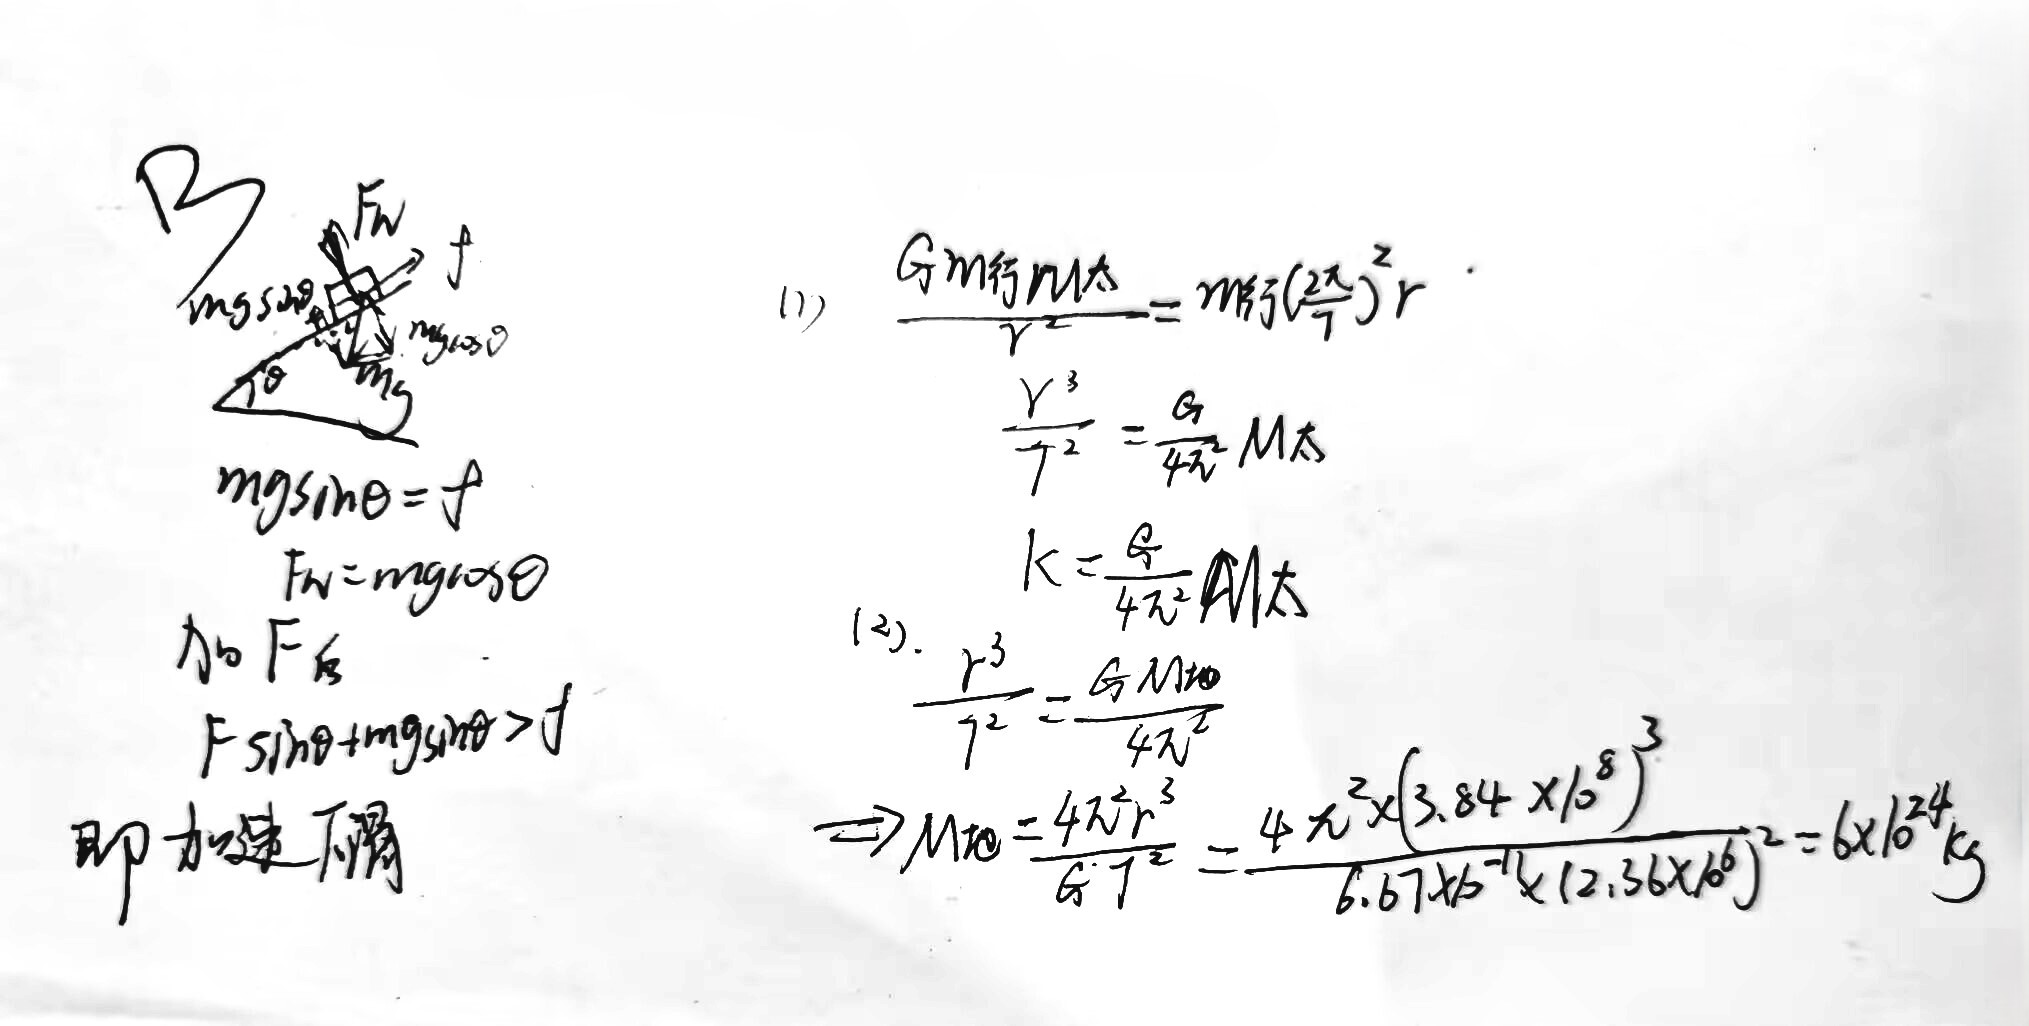 B
F_N
f
mgsinθ
mgcosθ
θ
mg
mgsinθ=f
F_N=mgcosθ
加F后
Fsinθ+mgsinθ>f
即加速下滑
(1) Gm行M太/r² = m行(2π/T)²r
r³/T² = G/4π² M太
k = G/4π² M太
(2). r³/T² = GM地/4π²
⇒M地 = 4π²r³/GT² = 4π²×(3.84×10⁸)³/6.67×10⁻¹¹×(2.36×10⁶)² = 6×10²⁴kg